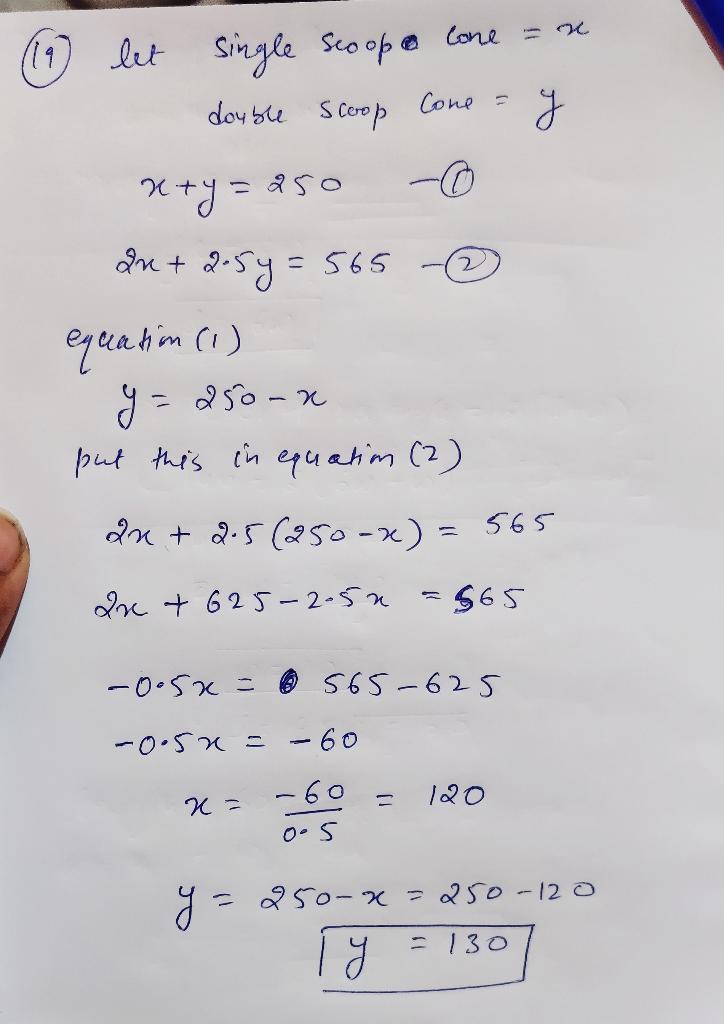 (19) let single scoop cone = x
double scoop cone = y
x+y = 250 -(1)
2x + 2.5y = 565 -(2)
equation (1)
y = 250 - x
put this in equation (2)
2x + 2.5 (250 - x) = 565
2x + 625 - 2.5x = 565
-0.5x = 565 - 625
-0.5x = -60
x = -60/0.5 = 120
y = 250 - x = 250 - 120
y = 130